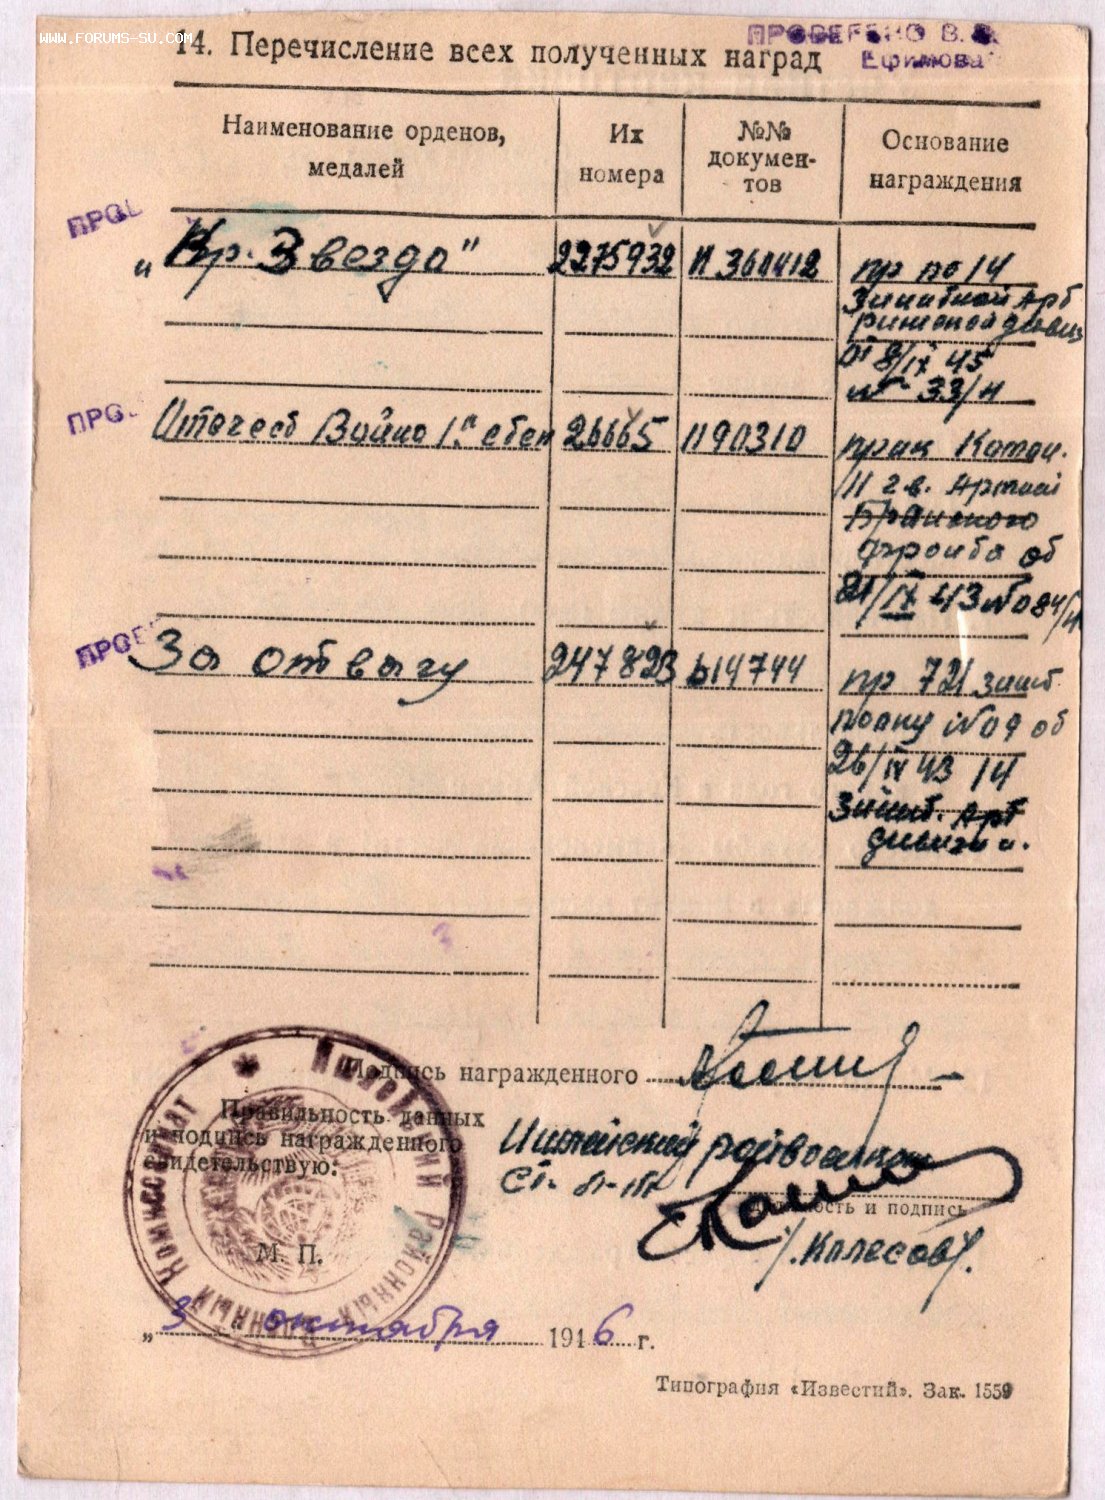 WWW.FORUMS-SU.COM
ПРОВЕРЕНО В.
Ефимова
14. Перечисление всех полученных наград
Наименование орденов, медалей
Их номера
№№ документов
Основание награждения
ПРОВ
„Кр. Звезда"
2275932
360412
пр по 14
Зинитной Арт
рижской дивиз
от 8/IX 45
№ 33/н
ПРО
Отечеств Война 1й степ
26665
П90310
прик Коман.
11 гв. Армией
Брянского
фронта от
21/IX 43 №084/н
ПРОВЕ
За отвагу
247823
Б14744
пр 721 зинт
полку №09 от
26/IV 43 14
Зинит. Арт
дивизии.
Подпись награжденного
Правильность данных
и подпись награжденного
свидетельствую:
райвоенком
Ст. л-нт
должность и подпись
/.Колесов/.
М. П.
Районный Военный Комиссариат
„3" октября 1946 г.
Типография «Известий». Зак. 1559